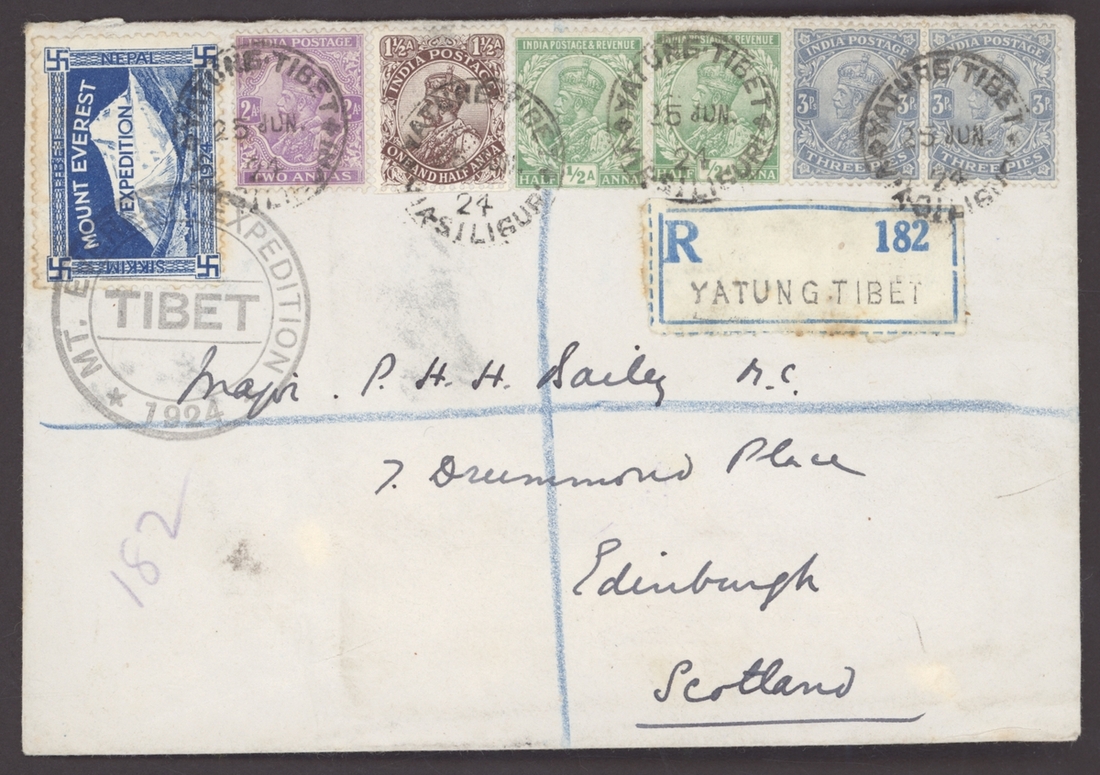 NEPAL
MOUNT EVEREST
EXPEDITION
1924
SIKKIM
INDIA POSTAGE
2A 2A
TWO ANNAS
1½A 1½A
INDIA POSTAGE
ONE AND HALF ANNA
INDIA POSTAGE & REVENUE
HALF 1/2A ANNA
INDIA POSTAGE & REVENUE
HALF 1/2A ANNA
INDIA POSTAGE
3P. 3P.
THREE PIES
INDIA POSTAGE
3P. 3P.
THREE PIES
YATUNG-TIBET
25 JUN.
24
VIA SILIGURI
YATUNG-TIBET
24
VIA SILIGURI
YATUNG-TIBET
25 JUN.
24
VIA SILIGURI
YATUNG-TIBET
25 JUN.
24
VIA SILIGURI
R 182
YATUNG TIBET
MT. EVEREST EXPEDITION
TIBET
* 1924
Major. P. H. H. Bailey M.C.
7. Drummond Place
Edinburgh
Scotland
182